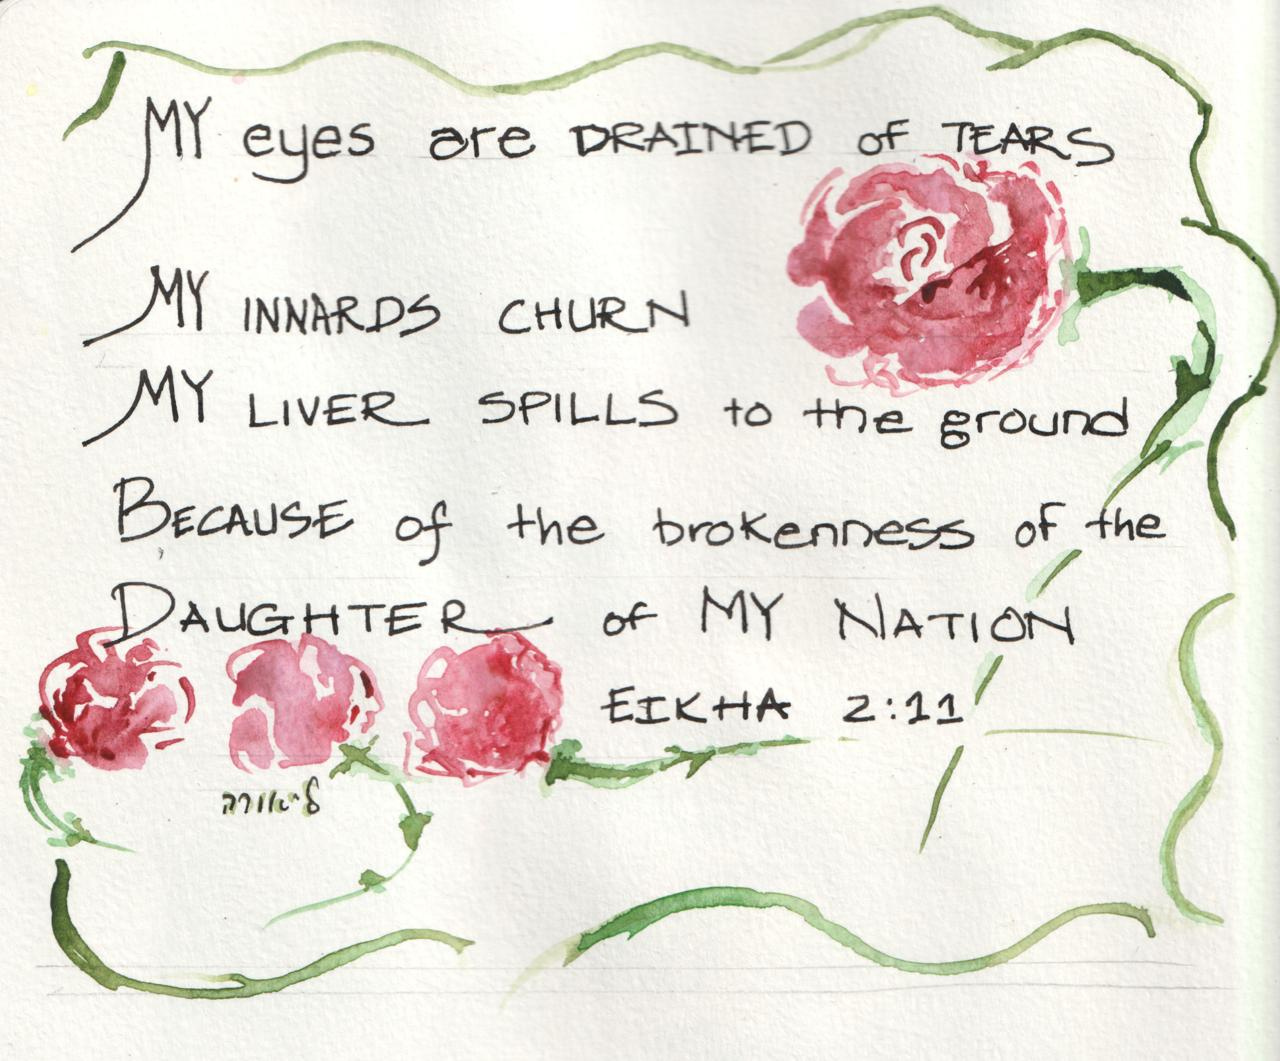 MY eyes are DRAINED of TEARS
MY INNARDS CHURN
MY LIVER SPILLS to the ground
BECAUSE of the brokenness of the
DAUGHTER of MY NATION
EIKHA 2:11
ליאורה